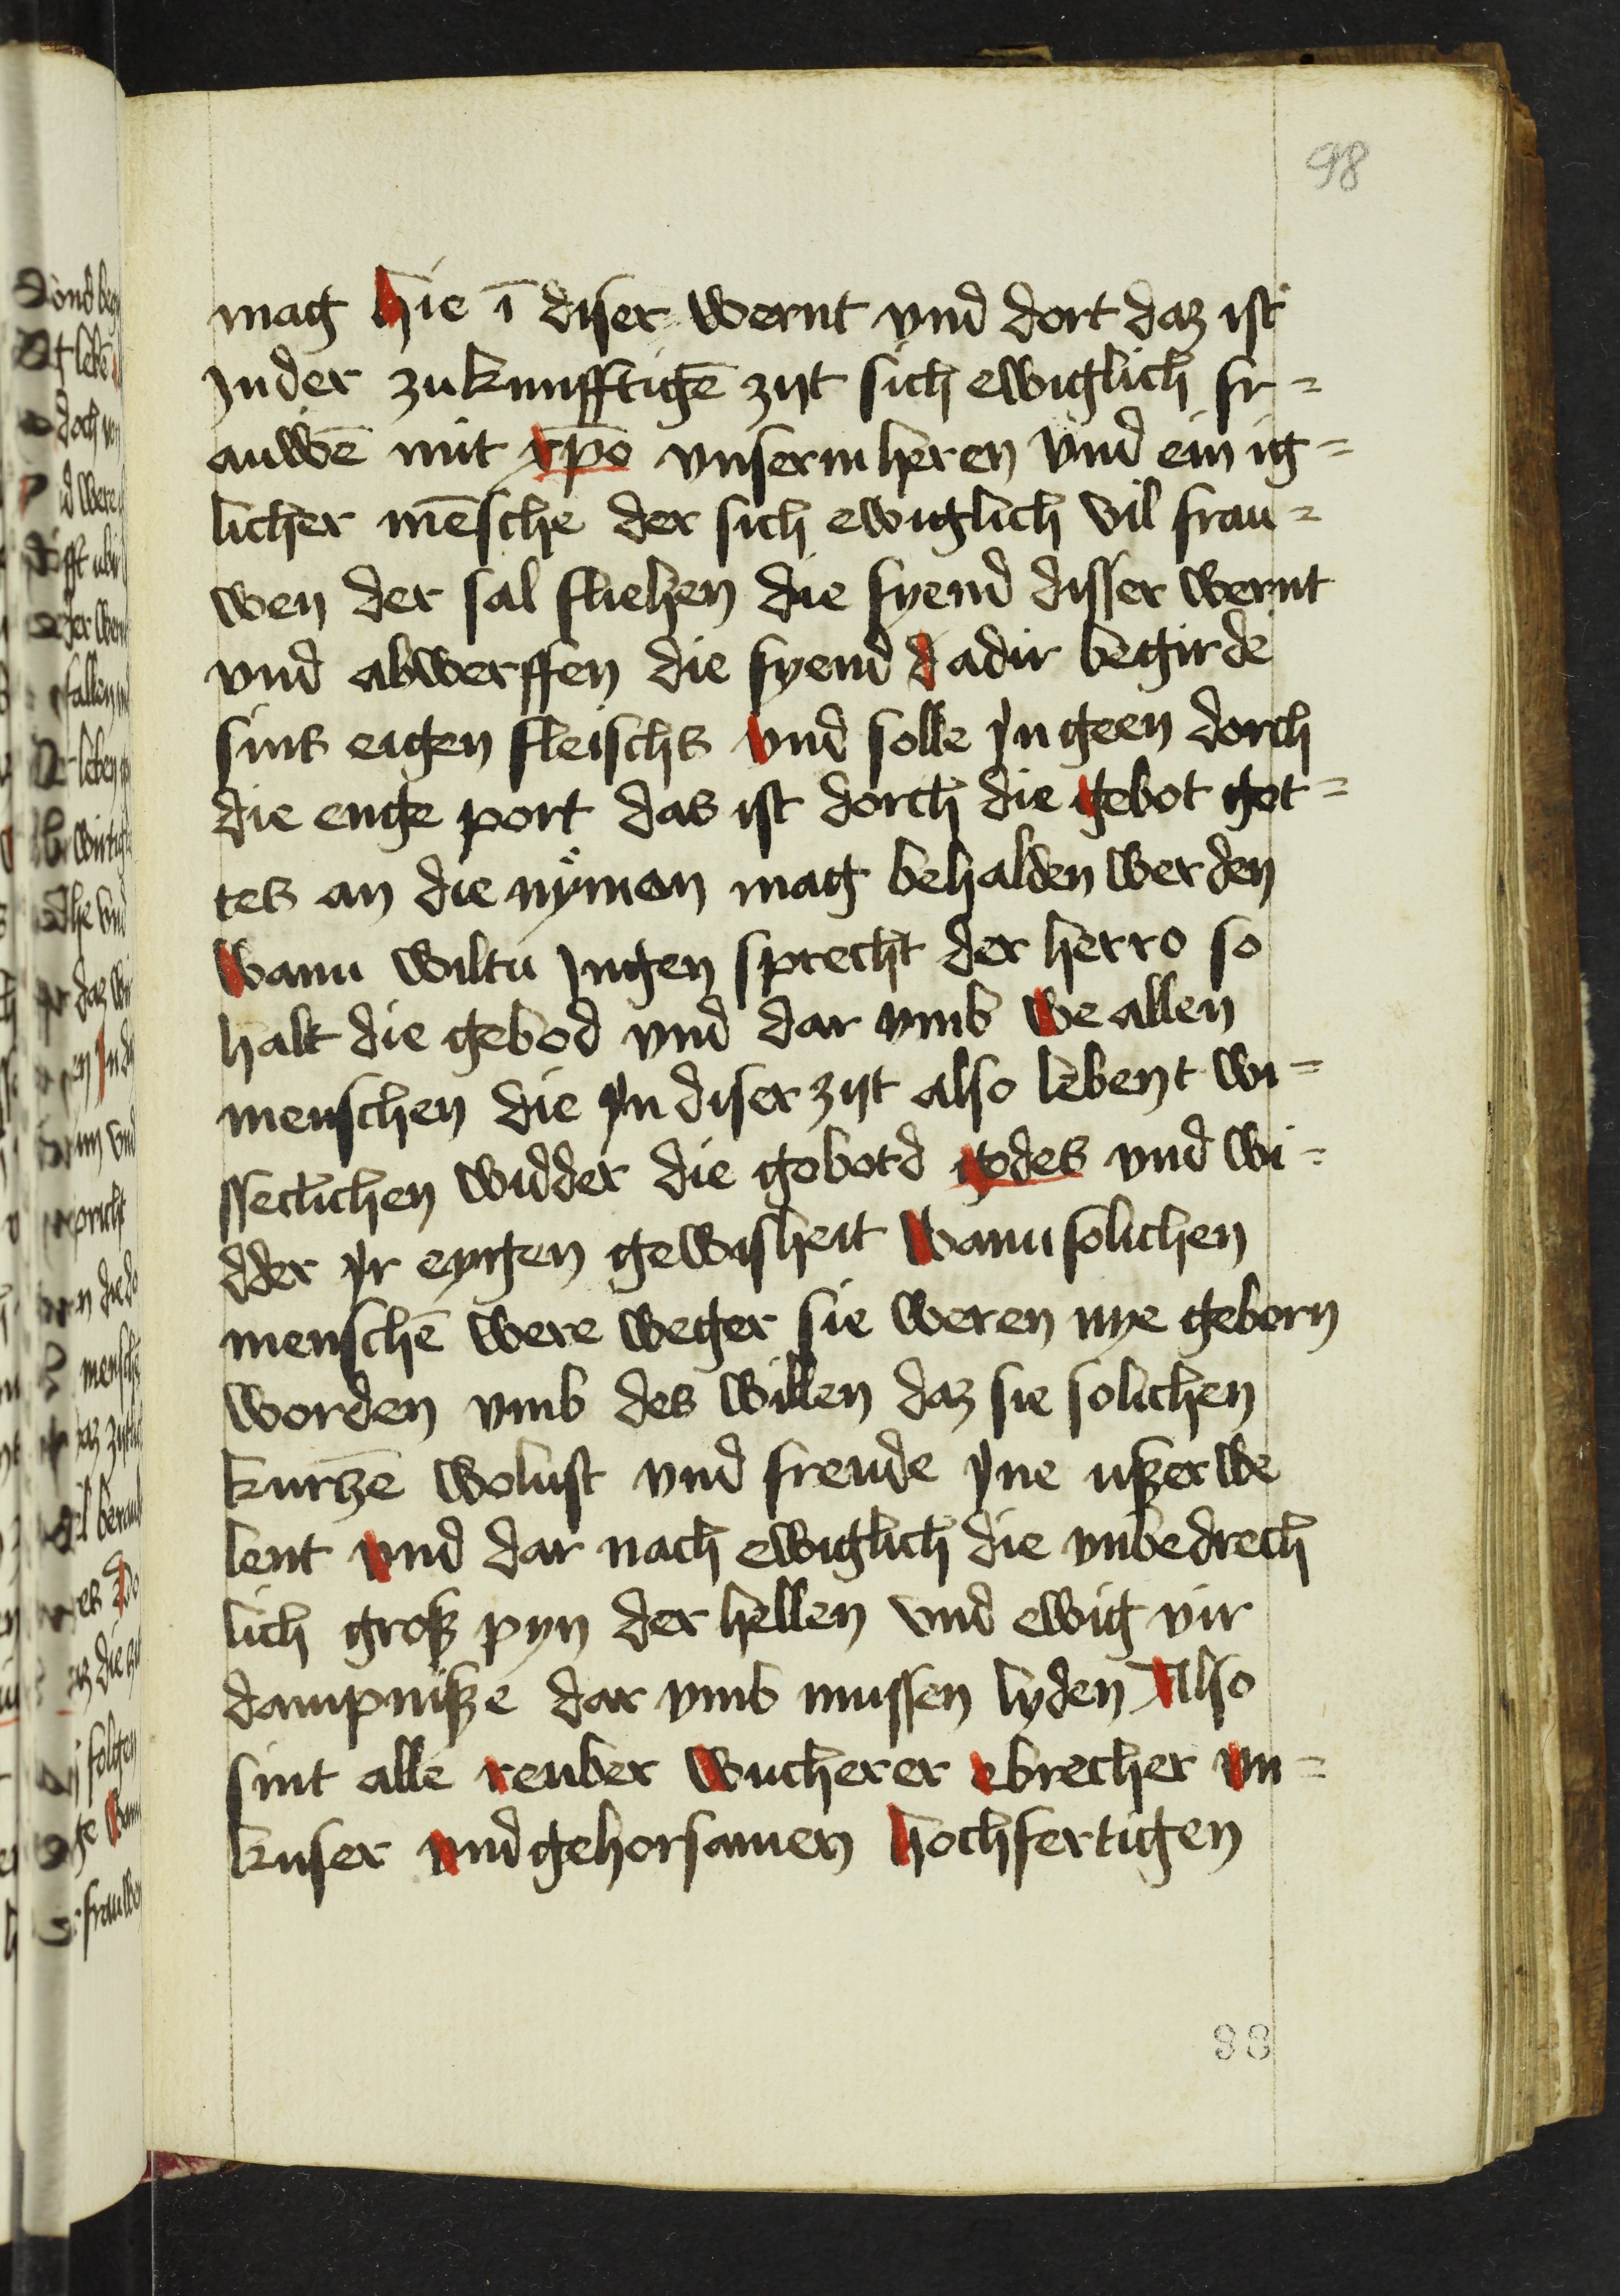 98
mag hie ī diser wernt vnd dort daz ist
Jnder zukunfftigē zijt sich ewiglich fr=
auwē mit xp̄o vnserm heren vnd ein ig=
licher mēsche der sich ewiglich vil frau=
wen der sal fliehen die fyend disser wernt
vnd abwerffen die fyend d adir begirde
sins eigen fleischs vnd solle jn geen dorch
die enge port das ist dorch die gebot got=
tes an die nyman mag behalden werden
wann wiltu Jngen sprecht der herro so
halt die gebod vnd dar vmb we allen
menschen die jn diser zijt also lebent wi=
ssetlichen widder die gebotd godes vnd wi=
dder yr eyngen gewisheit wann solichen
menschē were weger sie weren nye geborn
worden vmb des willen daz sie solichen
kurtzē wolust vnd freude yne uszerwe
lent vnd dar nach ewiglich die vnbedrech
lich grosz pyn der hellen vnd ewig vir
dampnisze dar vmb mussen lyden Also
sint alle reuber wucherer ebrecher vn=
kuser vnd gehorsamen hochfertigen
88